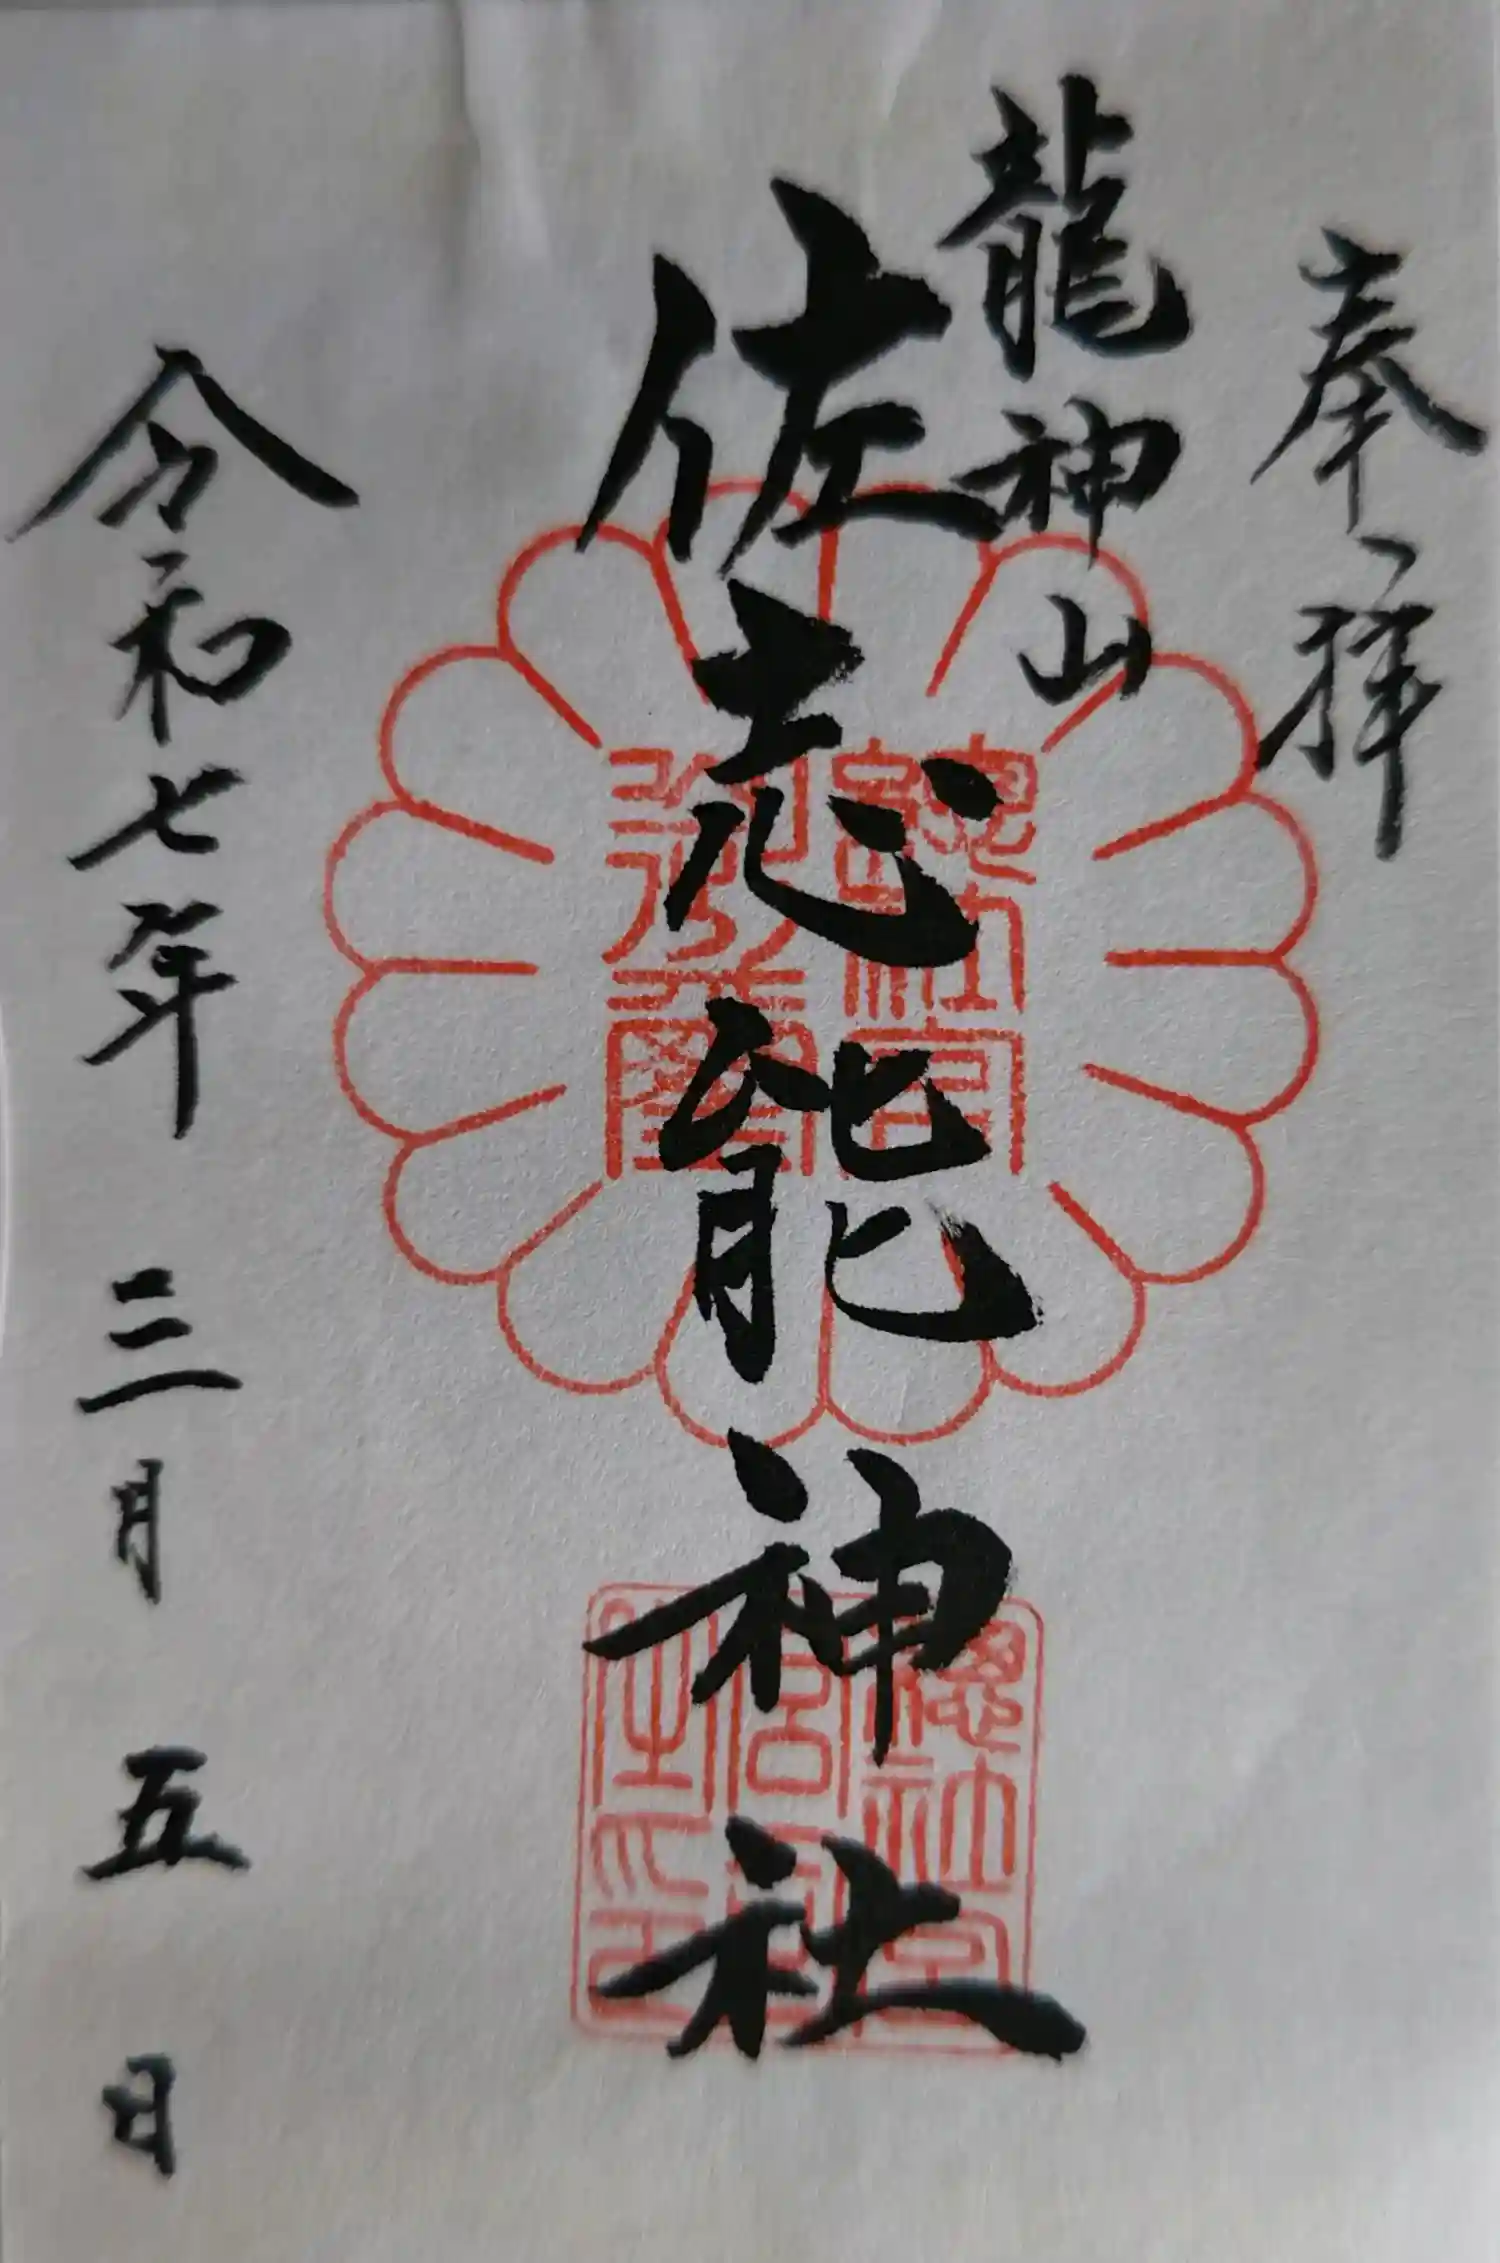 奉拝
龍神山
佐志能神社
令和七年 三月 五日
總社宮